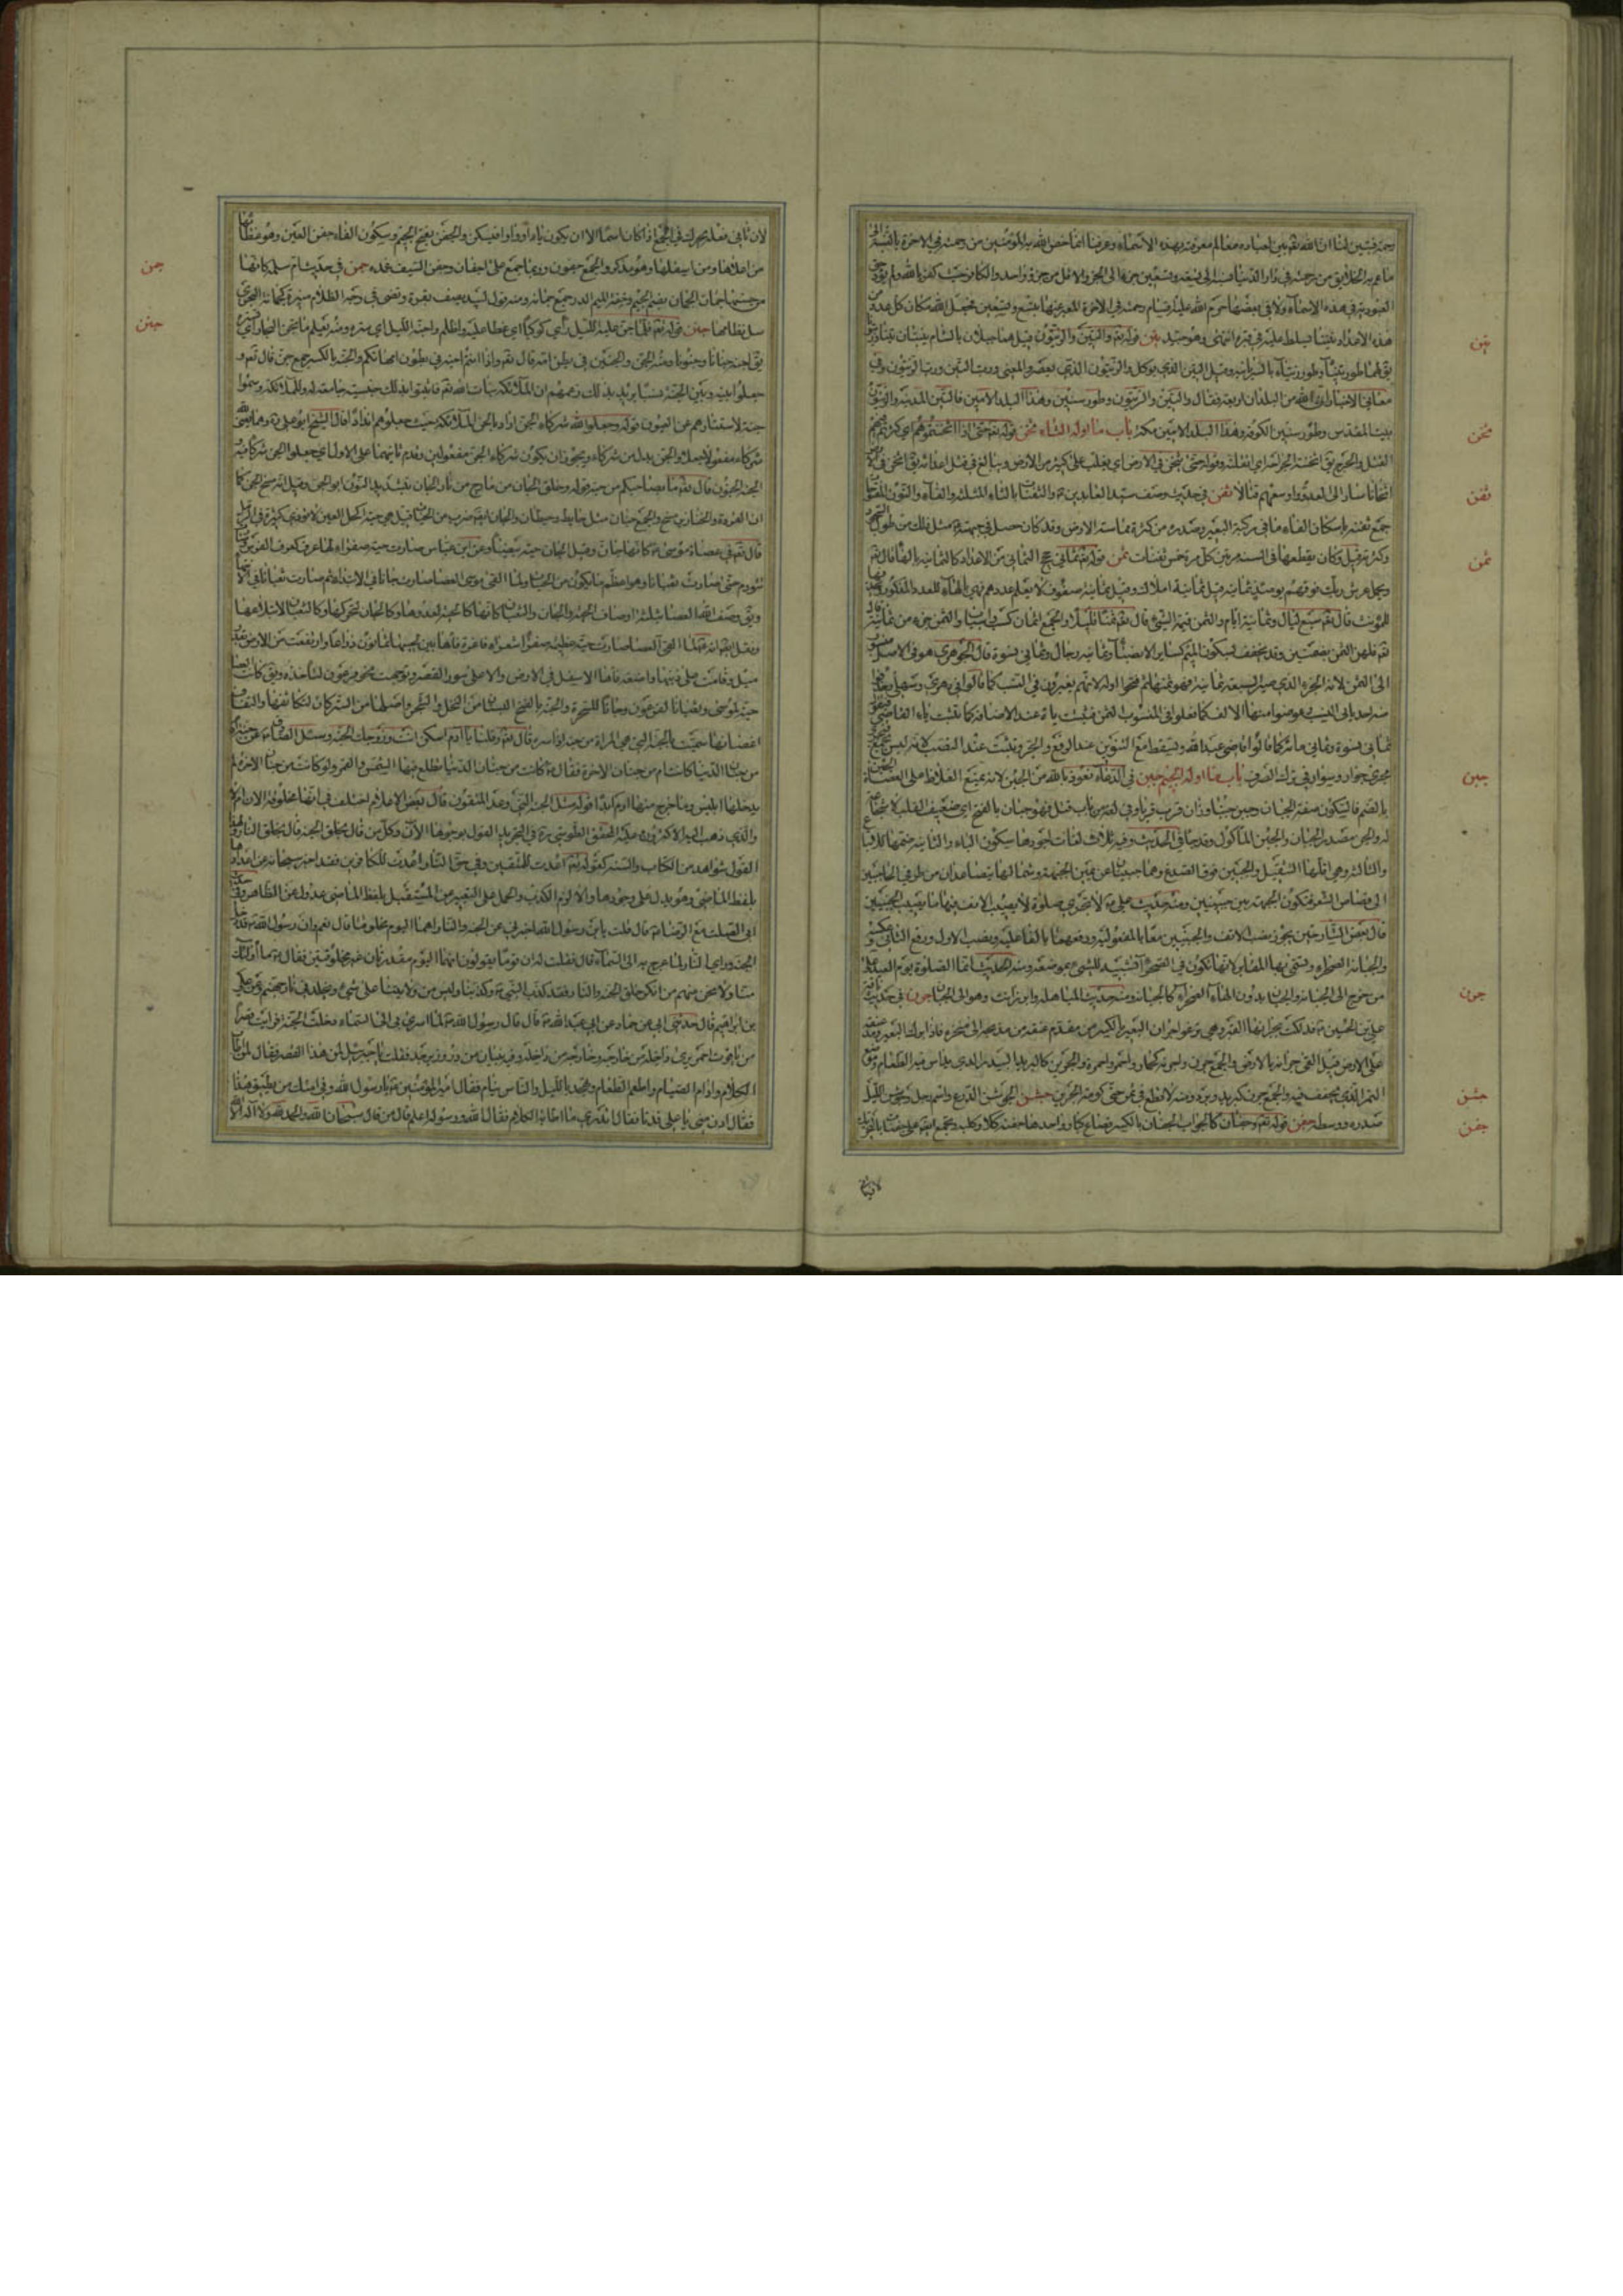 رحمته فتبين لنا ان الله تع بين لعباده معالم معرفته بهذه الاسماء وعرفنا انما خص الله به المؤمنين من رحمته في الاخرة بالنسبة الى
ما عم به الخلايق من رحمته في دار الدنيا نسبة تسعة وتسعين جزءا الى الجزء والاقل من جزء واحد والكافر حيث كفر بالله ولم يؤد حق
العبودية في هذه الاسماء ولا في بعضها حرم الله عليه اقسام رحمته في الاخرة المعبر عنها بتسع وتسعين فجعل الله مكان كل عدد من
هذه الاعداد تنينا يسلط عليه في قبره انتهى وهو جيد تين قوله تع والتين والزيتون قيل هما جبلان بالشام ينبتان تينا وزيتونا
يق لهما طور تينا وطور زيتا بالسريانية وقيل التين الذي يؤكل والزيتون الذي يعصر والمعنى ورب التين ورب الزيتون وفي
معاني الاخبار ان الله اختار من البلدان اربعة فقال والتين والزيتون وطور سنين وهذا البلد الامين فالتين المدينة والزيتون
بيت المقدس وطور سنين الكوفة وهذا البلد الامين مكة باب ما اوله الثاء ثخن قوله تع حتى اذا اثخنتموهم اي كثر فيهم
القتل والجرح يق اثخنته الجراحة اي اثقلته وقوله حتى يثخن في الارض اي يغلب على كثير من الارض ويبالغ في قتل اعدائه يق اثخن في الارض
اثخانا سار الى العدو واوسعهم قتالا ثفن في حديث وصف سيد العابدين ع ذو الثفنات بالثاء المثلثة والفاء والنون المفتوحات
جمع ثفنة باسكان الفاء ما في ركبة البعير وصدره من كثرة مماسة الارض وقد كان حصل في جبهته مثل ذلك من طول السجود
وكثرته قيل وكان يقطعها في السنة مرتين كل مرة خمس ثفنات ثمن قوله تع ثماني حجج الثماني من الاعداد كالثمانية بالهاء قال تع
ويحمل عرش ربك فوقهم يومئذ ثمانية قيل ثمانية املاك وقيل ثمانية صفوف لا يعلم عددهم فهي بالهاء للعدد المذكر وبحذفها
للمؤنث قال تع سبع ليال وثمانية ايام والثمن قيمة الشيء قال تع ثمنا قليلا والجمع اثمان كسبب واسباب والثمن جزء من ثمانية قال
تع فلهن الثمن بضمتين وقد يخفف فيكون الميم كساير الاجزاء وثمانية رجال وثماني نسوة قال الجوهري هو في الاصل منسوب
الى الثمن لانه الجزء الذي صير السبعة ثمانية فهو ثمنها ثم فتحوا اوله لانهم يغيرون في النسب كما قالوا دهري وسهلي وحذفوا
منه احد يائي النسب وعوضوا منها الالف كما فعلوا في المنسوب الى اليمن فثبتت ياؤه عند الاضافة كما تثبت ياء القاضي فتقول
ثماني نسوة وثماني مائة كما قالوا قاضي عبد الله وتسقط مع التنوين عند الرفع والجر وتثبت عند النصب لانه ليس بجمع فيجري
مجرى جوار وسوار في ترك الصرف باب ما اوله الجيم جبن في الدعاء نعوذ بالله من الجبن لانه يمنع الغلاظة على العصاة الجبن
بالضم فالسكون صفة الجبان وجبن جبنا وزان قرب قربا وفي لغة من باب قتل فهو جبان بالفتح اي ضعيف القلب لا شجاعة
له والجبن مصدر الجبان والجبن الماكول وقد جاء في الحديث وفيه ثلاث لغات اجودها سكون الباء والثانية ضمها للاتباع
والثالثة وهي اقلها التثقيل والجبين فوق الصدغ وهما جبينان عن يمين الجبهة وشمالها يتصاعدان من طرفي الحاجبين
الى قصاص الشعر فتكون الجبهة بين جبينين ومنه حديث علي ع لا تجزي صلوة لا يصيب الانف فيها ما يصيب الجبينين
قال بعض الشارحين يجوز نصب الانف والجبينين معا بالمفعولية ورفعهما بالفاعلية ونصب الاول ورفع الثاني وعكسه
والجبانة الصحراء وتسمى بها المقابر لانها تكون في الصحراء تشبيه للشيء بموضعه ومنه الحديث انما الصلوة يوم العيد على
من خرج الى الجبانة والجبان بدون الهاء الصحراء كالجبانة ومنه حديث المباهلة وابرز انت وهو الى الجبان جرن في حديث ناقة
علي بن الحسين ع فدلكت بجرانها القبر وهي ترغو اجران البعير بالكسر من مقدم عنقه من مذبحه الى منخره فاذا برك البعير ومد عنقه
على الارض قيل القى جرانه بالارض والجمع جرن واجرنة كحمار وحمر واحمرة والجرين كالبريد البيدر الذي يداس فيه الطعام وموضع
التمر الذي يجفف فيه والجمع جرن كبريد وبرد ومنه لا قطع في ثمر حتى يؤويه الجرين جشن الجوشن الدرع واسم رجل وجوشن الليل
صدره ووسطه جفن قوله تع وجفان كالجواب الجفان بالكسر قصاع كبار واحدها جفنة ككلاب وكلبة وتجمع ايضا على جفنات بالتحريك
لان ثاني
لان ثاني فعلة يحرك في الجمع اذا كان اسما الا ان يكون ياء او واوا فيسكن والجفن بفتح الجيم وسكون الفاء جفن العين وهو غطاؤها
من اعلاها ومن اسفلها وهو مذكر والجمع جفون وربما جمع على اجفان وجفن السيف غمده جمن في حديث ام سلمة كانها
من حسنها جمان الجمان بضم الجيم وخفة الميم الدر جمع جمانة ومنه قول لبيد يصف بقرة وتضيء في وجه الظلام منيرة كجمانة البحري
سل نظامها جنن قوله تع فلما جن عليه الليل رأى كوكبا اي غطا عليه واظلم واجنه الليل اي ستره ومنه
يق اجنه جنانا وجنونا ومنه الجن والجنين في بطن امه قال تع واذ انتم اجنة في بطون امهاتكم والجنة بالكسر جمع جن قال تع و
جعلوا بينه وبين الجنة نسبا يريد بذلك زعمهم ان الملائكة بنات الله تع فاثبتوا بذلك جنسية جامعة له وللملائكة وسموا
جنة لاستتارهم عن العيون قوله وجعلوا لله شركاء الجن اراد بالجن الملائكة حيث جعلوهم اندادا قال الشيخ ابو علي ره وهما الله
شركاء مفعولا جعل والجن بدل من شركاء ويجوز ان يكون شركاء الجن مفعولين وقدم ثانيهما على الاول اي جعلوا الجن شركاء
الجنة الجنون قال تع ما بصاحبكم من جنة قوله وخلق الجان من مارج من نار الجان بتشديد النون ابو الجن وقيل انه مسخ الجن كما
ان القردة والخنازير مسخ والجمع جنان مثل حايط وحيطان والجان ايضا ضرب من الحيات قيل هي حية اكحل العين لا تؤذي كثيرة في الدور
قال تع في عصاة موسى ع كانها جان وقيل الجان حية بيضاء وعن ابن عباس صارت حية صفراء لها عرف كعرف الفرس
تتورم حتى صارت ثعبانا وهو اعظم ما يكون من الحيات ولما القى موسى العصا صارت جانا في الابتداء ثم صارت ثعبانا في الانتهاء
ويق وصف الله العصا بثلثة اوصاف الحية والجان والثعبان كانها كالحية لعدوها وكالجان لتحركها وكالثعبان لابتلاعها
ونقل ايضا انه لما القى العصا صارت حية عظيمة صفراء شعراء فاغرة فاها بين لحييها ثمانون ذراعا وارتفعت من الارض بقدر
ميل وقامت على ذنبها واضعة فاها الاسفل في الارض والاعلى سور القصر وتوجهت نحو فرعون لتاخذه ويق كانت العصا
حية لموسى وثعبانا لفرعون وجانا للسحرة والجنة بالفتح البستان من النخل والشجر واصلها من الستر كان لتكاثفها والتفاف
اغصانها سميت بالجنة التي هي المرة من جنه اذا ستره قال تع وقلنا يا ادم اسكن انت وزوجك الجنة وسئل الصادق ع عن جنة ادم
من جنان الدنيا كانت ام من جنان الاخرة فقال ع كانت من جنان الدنيا تطلع فيها الشمس والقمر ولو كانت من جنان الاخرة لم
يدخلها ابليس وما خرج منها ادم ابدا قوله مثل الجنة التي وعد المتقون قال بعض الاعلام اختلف في انها مخلوقة الان ام لا
والذي ذهب اليه الاكثرون وعليه المحقق الطوسي ره في التجريد القول بوجودها الان وكل من قال بخلق الجنة قال بخلق النار ولهذا
القول شواهد من الكتاب والسنة كقوله تع اعدت للمتقين وفي حق النار اعدت للكافرين فقد اخبر سبحانه عن اعدادها
بلفظ الماضي وهو يدل على وجودها والا لزم الكذب والحمل على التعبير عن المستقبل بلفظ الماضي عدول عن الظاهر وفي حديث
ابي الصلت مع الرضا ع قال قلت يا بن رسول الله اخبرني عن الجنة والنار اهما اليوم مخلوقتا قال نعم وان رسول الله ص قد دخل
الجنة وراى النار لما عرج به الى السماء قال فقلت له ان قوما يقولون انهما اليوم مقدرتان غير مخلوقتين فقال ع ما اولئك
منا ولا نحن منهم من انكر خلق الجنة والنار فقد كذب النبي ص وكذبنا وليس من ولايتنا على شيء ويخلد في نار جهنم وعن علي
بن ابراهيم قال حدثني ابي عن حماد عن ابي عبد الله ع قال قال رسول الله ص لما اسري بي الى السماء دخلت الجنة فرايت قصرا
من ياقوت احمر يرى داخله من خارجه وخارجه من داخله وفيه بنيان من در وزبرجد فقلت يا جبرئيل لمن هذا القصر فقال لمن اطاب
الكلام وادام الصيام واطعم الطعام وتهجد بالليل والناس نيام فقال امير المؤمنين ع يا رسول الله وفي امتك من يطيق هذا
فقال ادن مني يا علي فدنا فقال اتدري ما اطابة الكلام فقال الله ورسوله اعلم قال من قال سبحان الله والحمد لله ولا اله الا الله
تين
ثخن
ثفن
ثمن
جبن
جرن
جشن
جفن
جمن
جنن